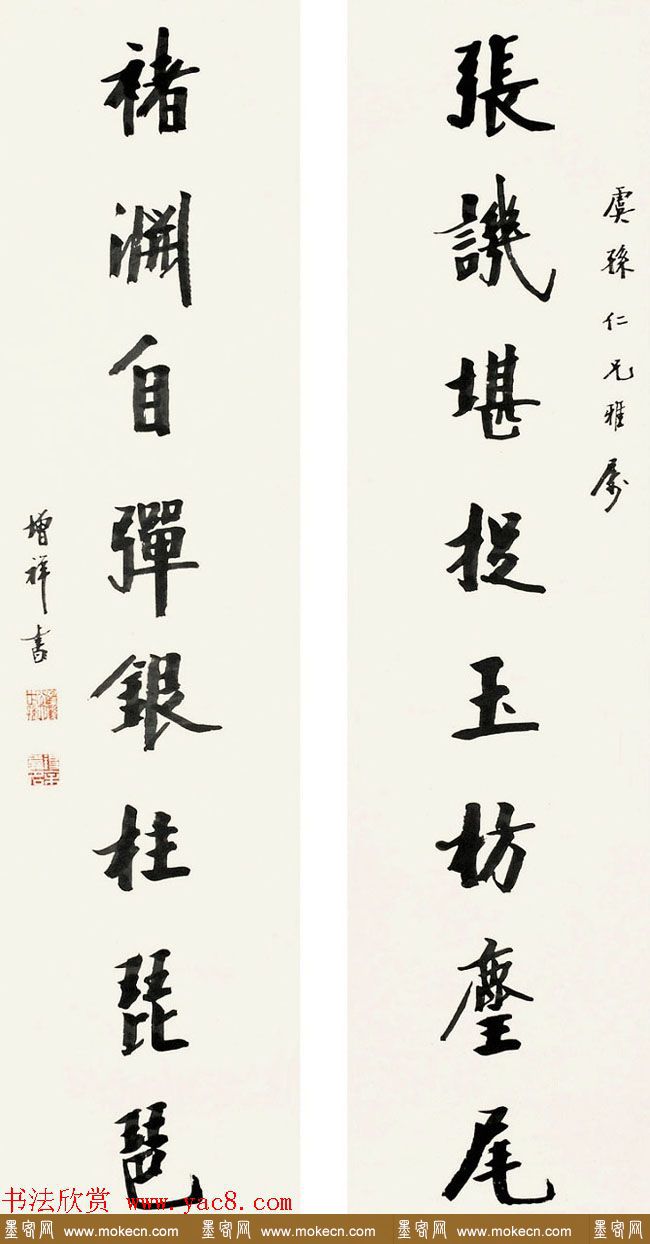 虞孫仁兄雅屬
張譏堪捉玉枋麈尾
褚淵自彈銀柱琵琶
增祥書
书法欣赏 www.yac8.com
墨客网 www.mokecn.com 墨客网 www.mokecn.com 墨客网 www.mokecn.com